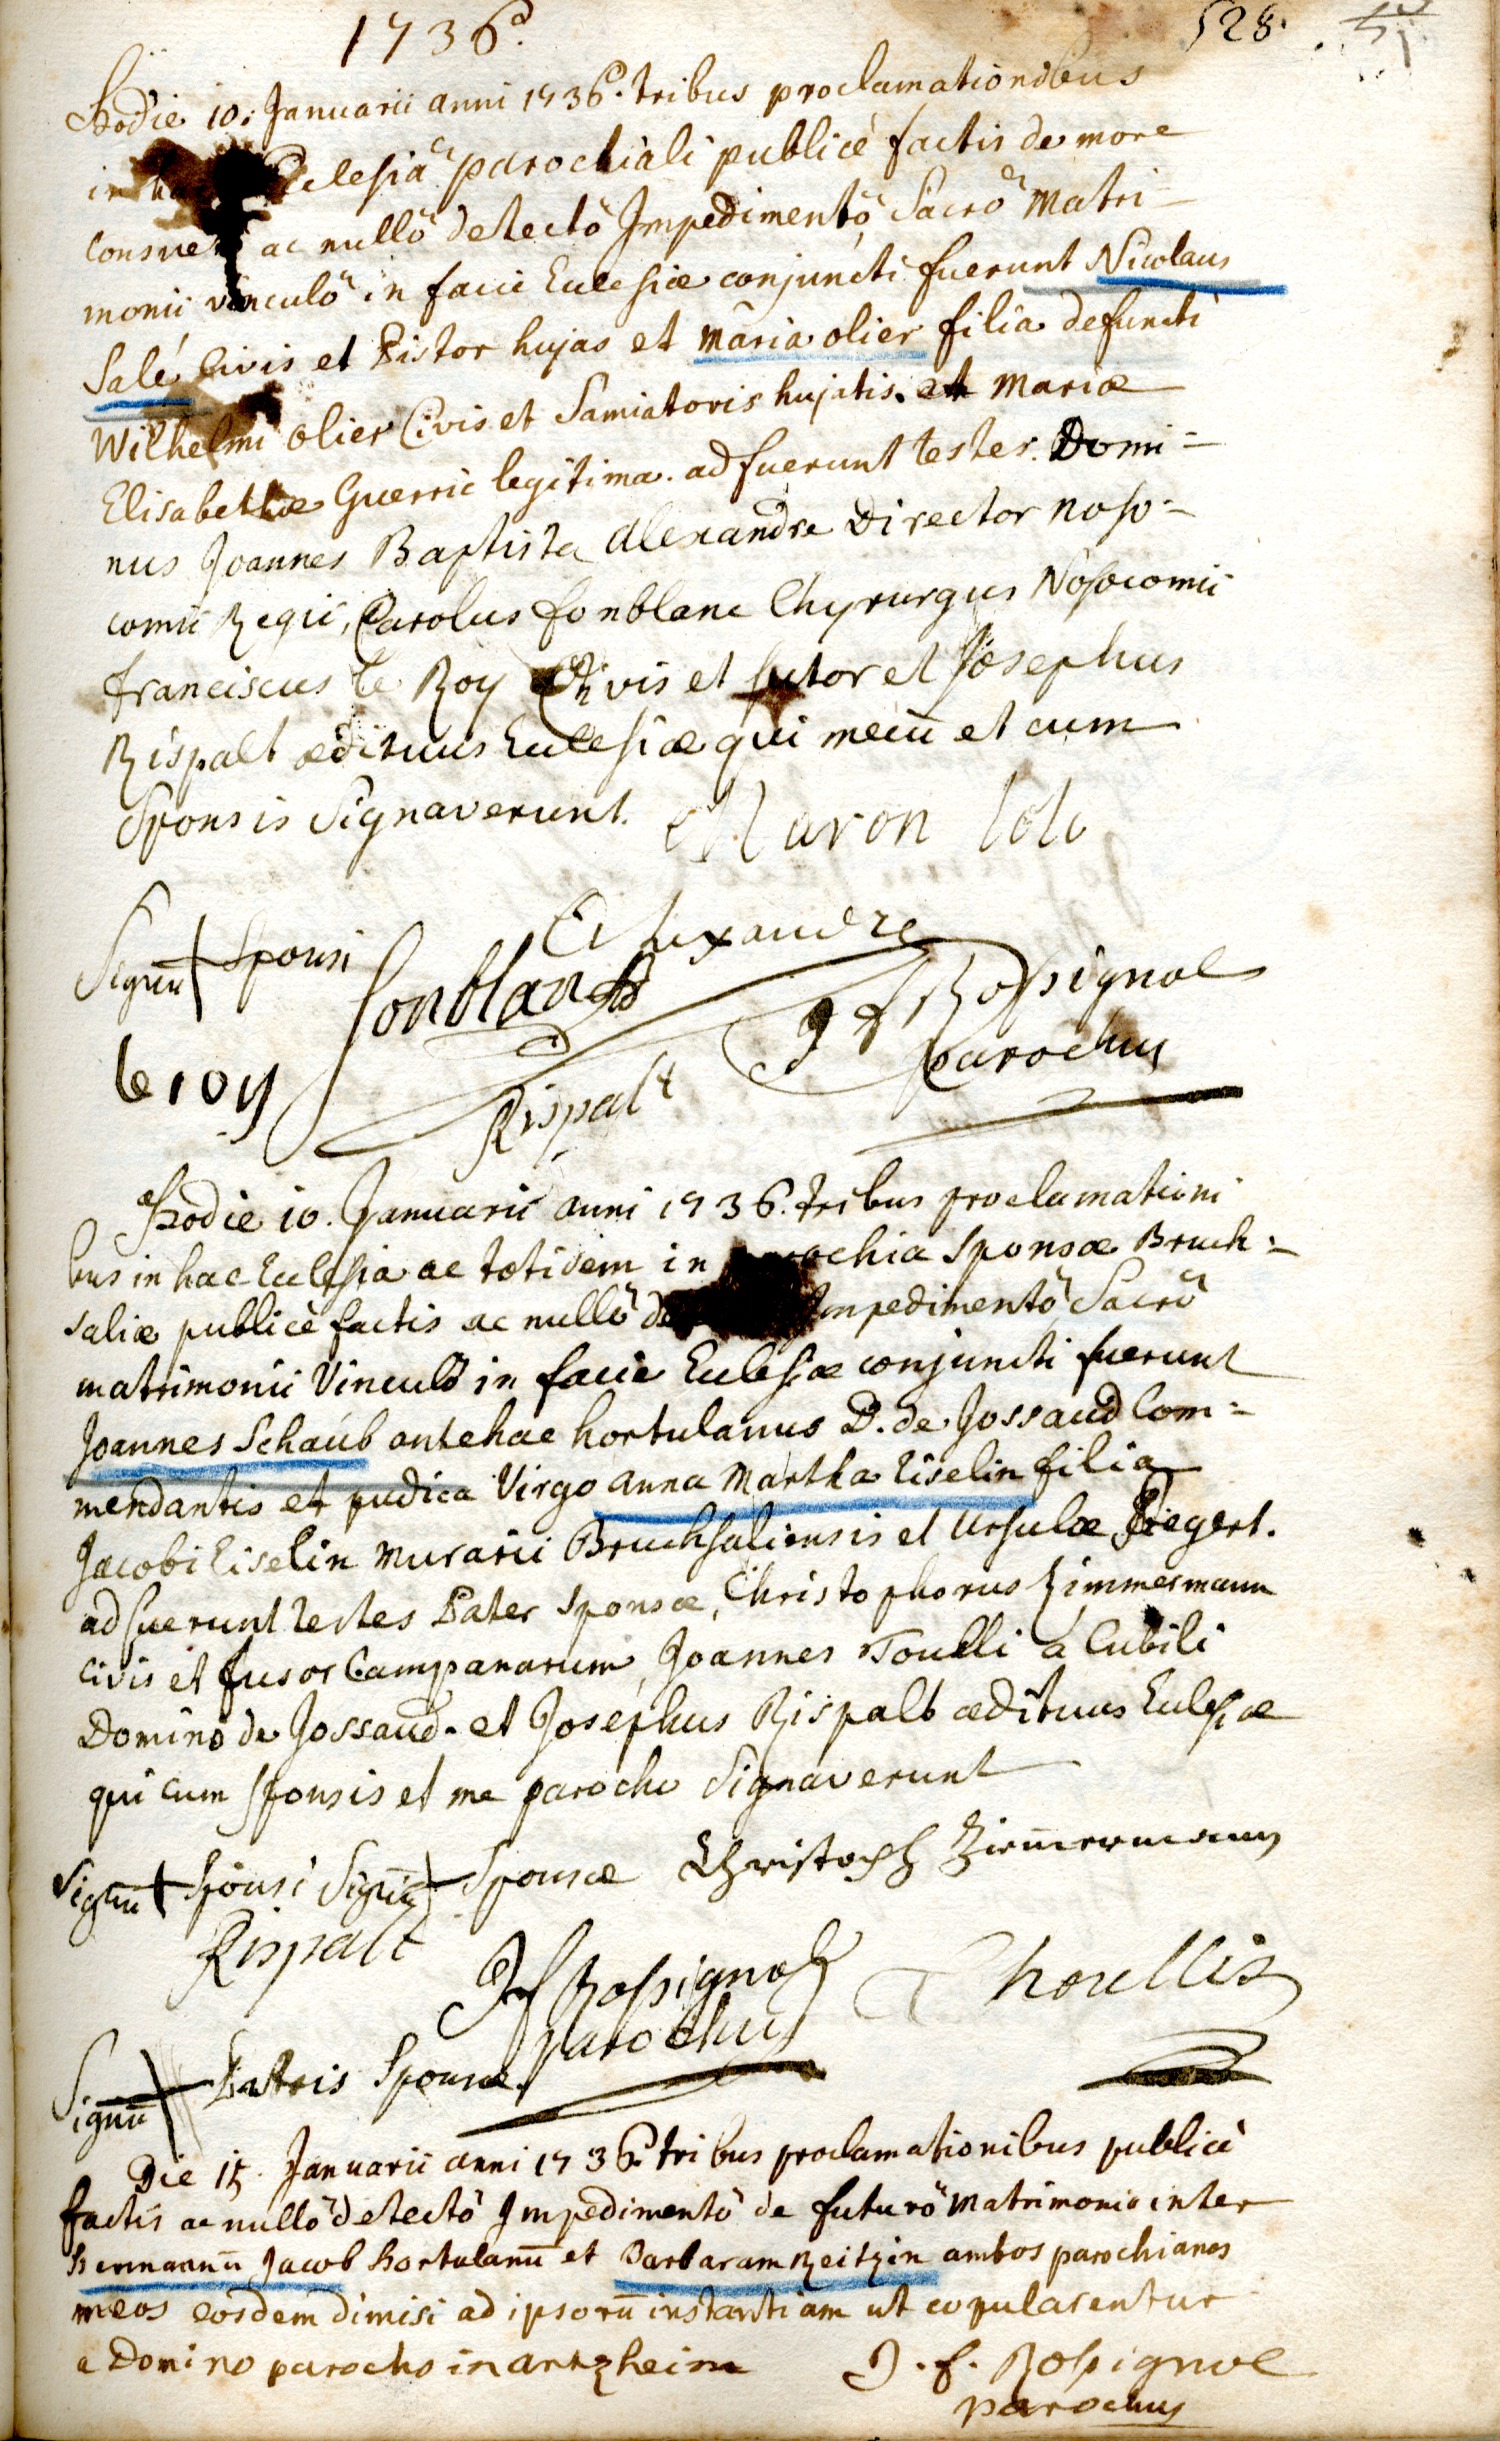 1736.
528.
Hodie 10. Januarii anni 1736. tribus proclamationibus
in Ecclesiâ parochiali publicè factis de more
consueto ac nullô detectô Impedimentô Sacrô Matri=
monii vinculô in facie Ecclesiæ conjuncti fuerunt Nicolaus
Salé Civis et Pistor hujas et Maria olier filia defuncti
Wilhelmi olier Civis et Samiatoris hujatis. et Mariæ
Elisabethæ Guerric legitima. adfuerunt testes. Domi=
nus Joannes Baptista Alexandre Director noso=
comii Regii, Carolus fonblanc Chyrurgus Nosocomii
franciscus le Roy Civis et sutor et Josephus
Rispalt ædituus Ecclesiæ qui mecū et cum
Sponsis Signaverunt.
Signū Sponsi
Alexandre
fonblanc
J f Rossignol
parochus
le roy
Rispalt
Hodie 10. Januarii anni 1736. tribus proclamationi
bus in hac Ecclesia ac totidem in parochia Sponsæ Bruch=
saliæ publicè factis ac nullô de Impedimentô Sacrô
matrimonii Vinculô in facie Ecclesiæ conjuncti fuerunt
Joannes Schaub antehac hortulanus D. de Jossaud Com=
mendantis et pudica Virgo anna Martha Eiselin filia
Jacobi Eiselin murarii Bruchsaliensis et Ursulæ Siegert.
adfuerunt testes Pater Sponsæ, Christophorus Zimmermann
Civis et fusor Campanarum, Joannes Toulli à Cubili
Domino de Jossaud. et Josephus Rispalt ædituus Ecclesiæ
qui cum Sponsis et me parocho Signaverunt
Signū Sponsi Signū Sponsæ Christoph Zimmermann
Rispalt
J f Rossignol
parochus
Thoullis
Signū Patris Sponsæ.
Die 15. Januarii anni 1736. tribus proclamationibus publicè
factis ac nullô detectô Impedimentô de futurô Matrimonio inter
Hermannū Jacob hortulanū et Barbaram Reitzin ambos parochianos
meos eosdem dimisi ad ipsorū instantiam ut copularentur
a Domino parocho in artzheim
J. f. Rossignol
parochus